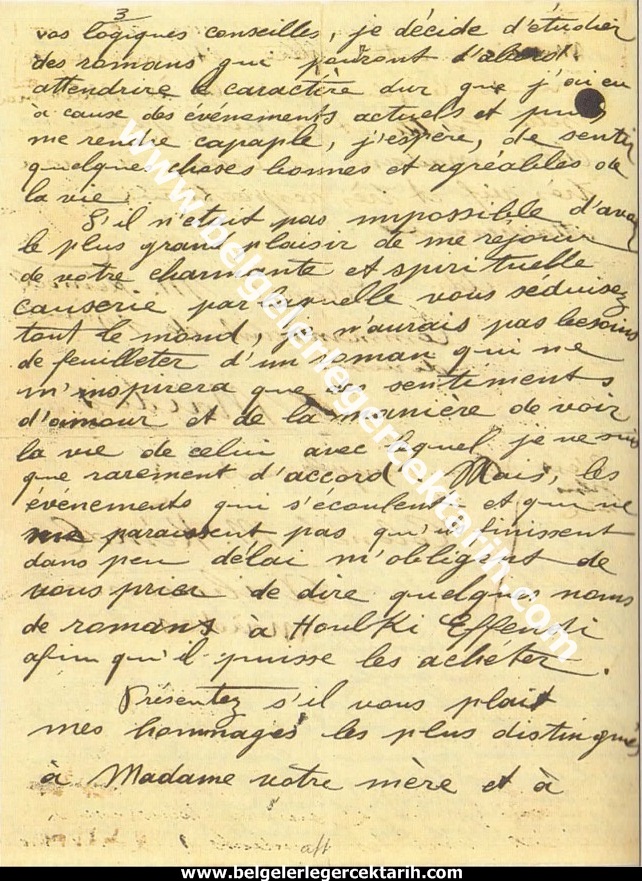 3
vos logiques conseilles, je décide d'étudier
des romans qui pouront d'abord
attendrire le caractère dur que j'ai eu
à cause des événements actuels et puis
me rendre capaple, j'espère, de sentir
quelques choses bonnes et agréables de
la vie.
S'il n'était pas impossible d'avoir
le plus grand plaisir de me rejouir
de votre charmante et spirituelle
causerie par laquelle vous séduisez
tout le mond, je n'aurais pas besoins
de feuilleter d'un roman qui ne
m'inspirera que des sentiments
d'amour et de la manière de voir
la vie de celui avec lequel je ne suis
que rarement d'accord. Mais, les
événements qui s'écoulent et qui ne
me paraissent pas qu'ils finissent
dans peu délai m'obligent de
vous prier de dire quelque noms
de romans à Houlki Effendi
afin qu'il puisse les achéter.
Présentez s'il vous plait
mes hommages les plus distingués
à Madame votre mère et à
www.belgelerlegercektarih.com
www.belgelerlegercektarih.com